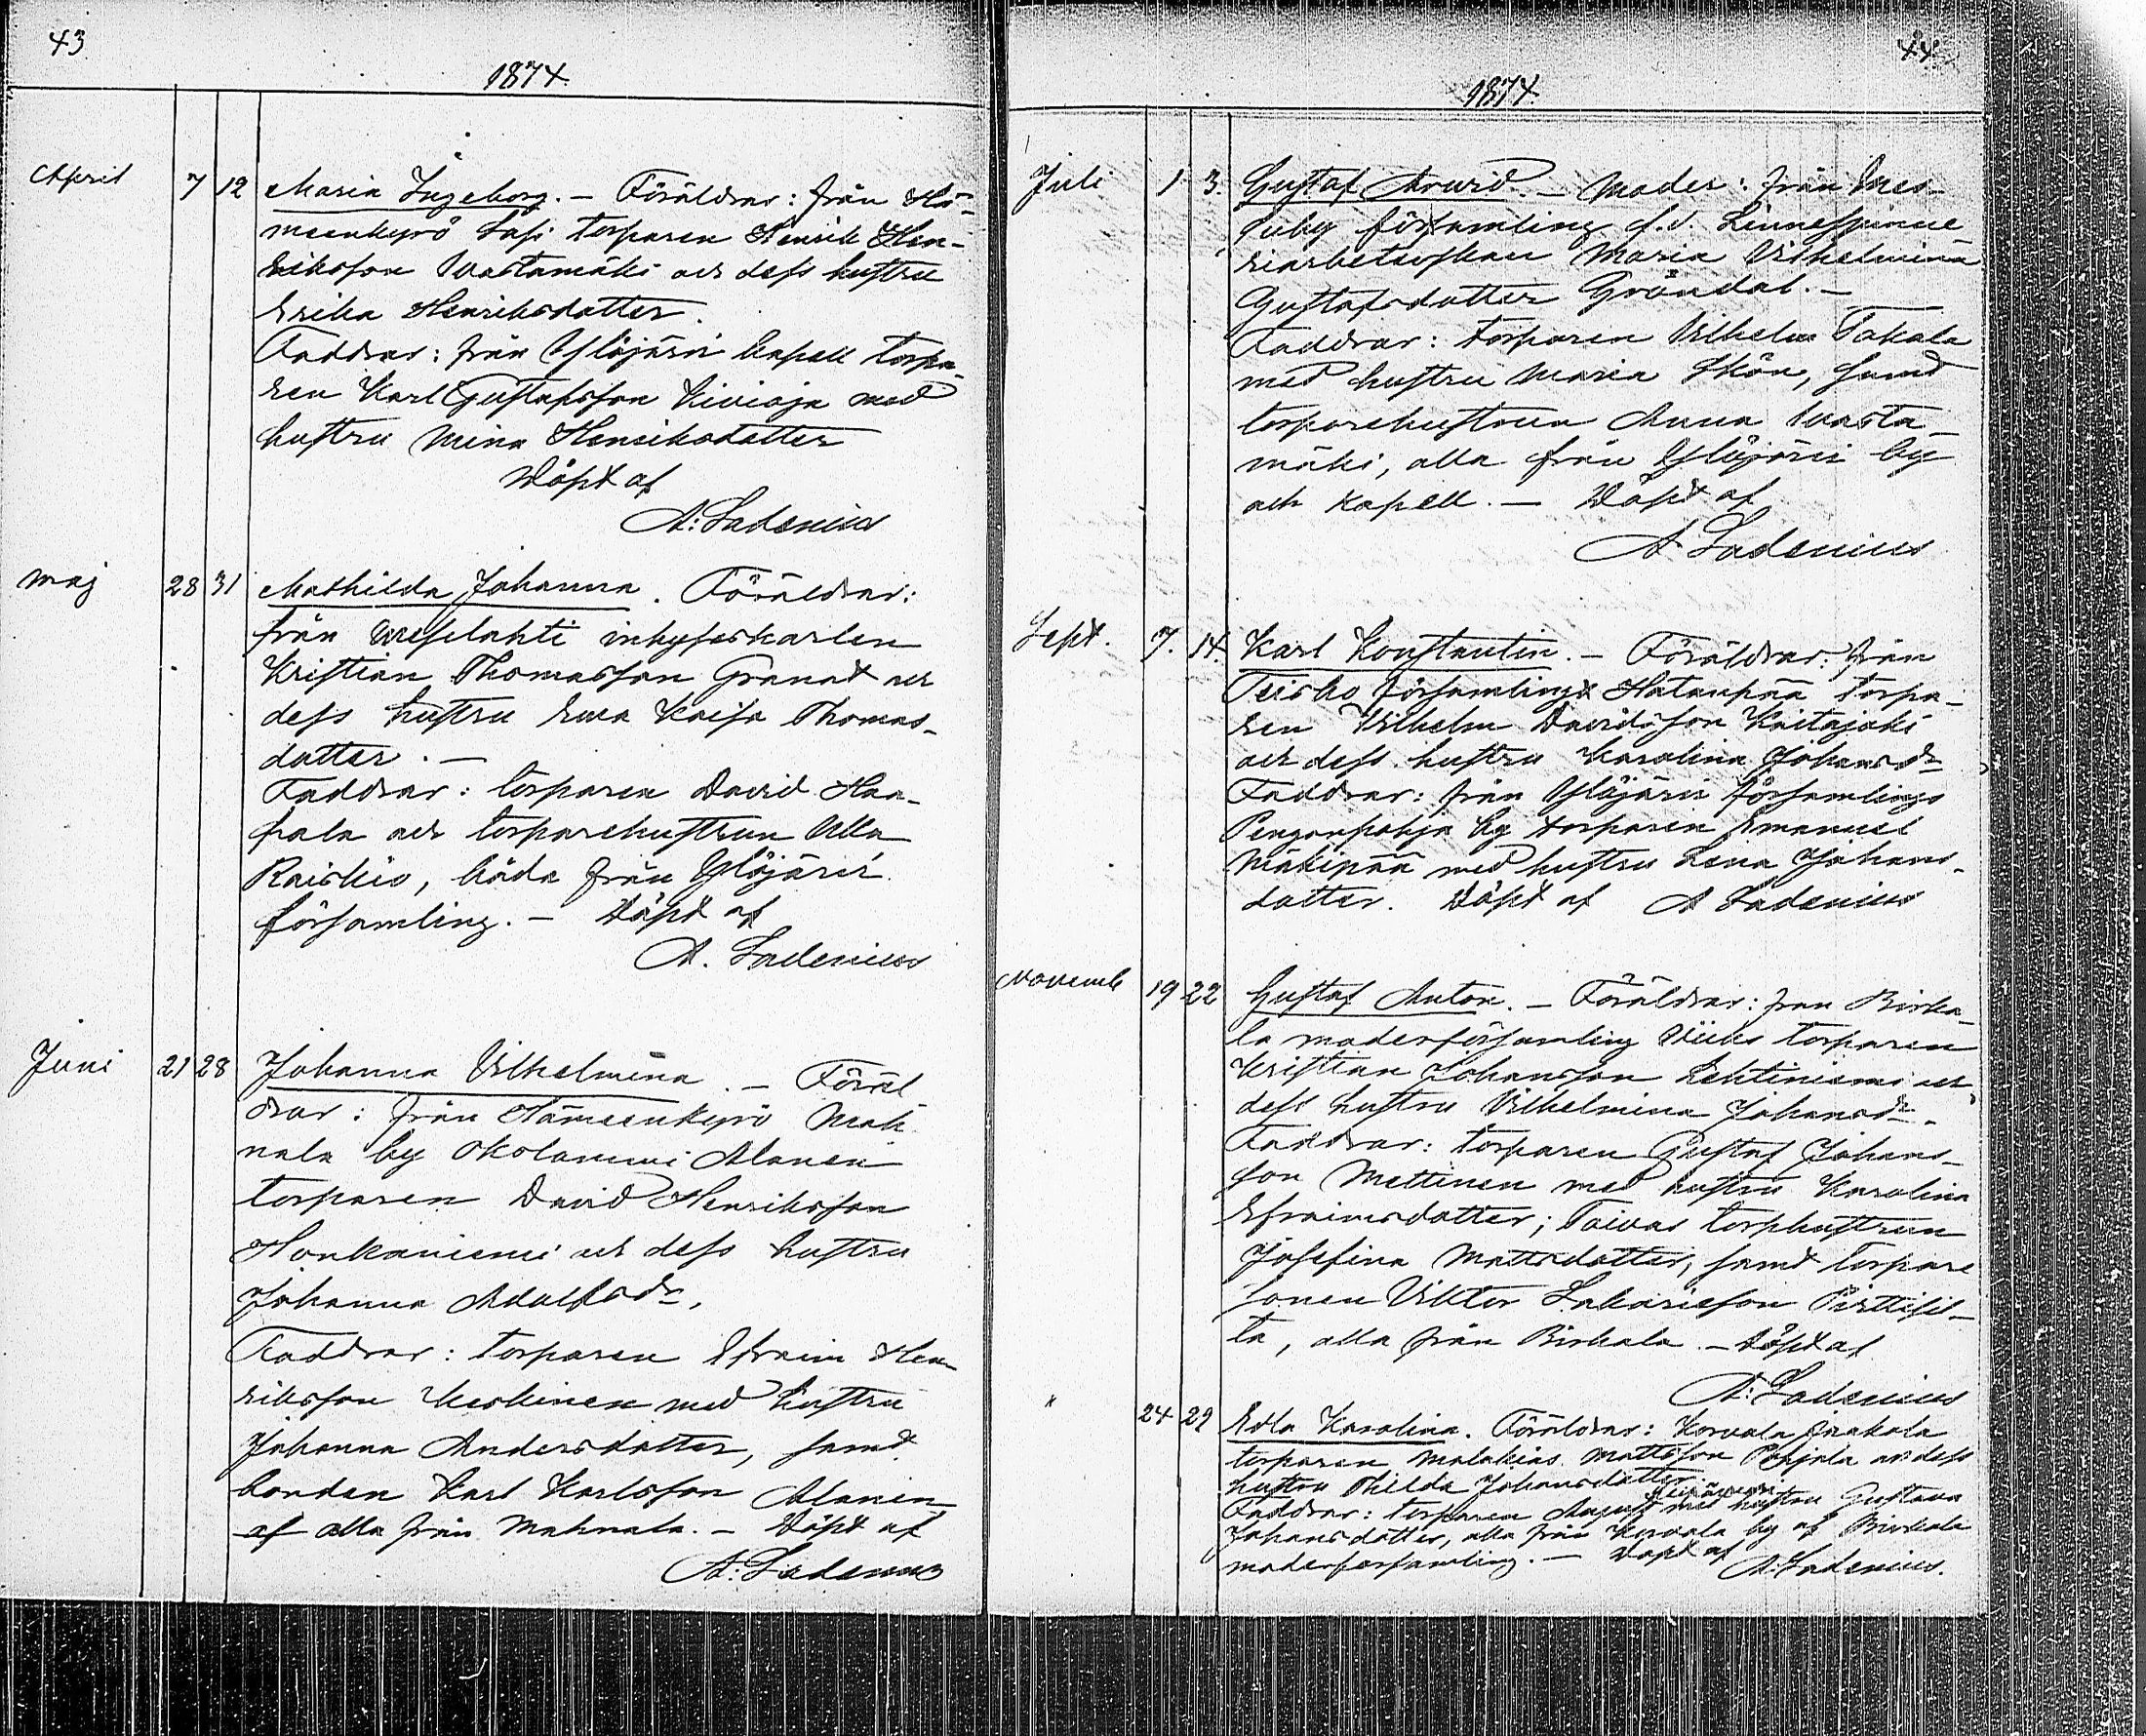 43
1874.
April 7 12 Maria Ingeborg. – Föräldrar: från Hä-
meenkyrö Sasi torparen Henrik Hen-
riksson Wastamäki och dess hustru
Erika Henriksdotter.
Faddrar: från Ylöjärvi kapell torpa-
ren Karl Gustafsson Kivioja med
hustru Mina Henriksdotter
Döpt af
A: Ladenius
Maj 28 31 Mathilda Johanna. Föräldrar:
från inhyseskarlen
Kristian Thomasson Granat och
dess hustru Ewa Kaisa Thomas-
dotter. –
Faddrar: torparen David Haa-
pala och torparehustrun Ulla
Raiskio, båda från Ylöjärvi
församling. – Döpt af
A. Ladenius
Juni 21 28 Johanna Vilhelmina. – Föräl
drar: från Hämeenkyrö Mah
nala by Okolammi Alanen
torparen David Henriksson
Honkaniemi och dess hustru
Johanna Adolfsdr.
Faddrar: torparen Efraim Hen
riksson Keskinen med hustru
Johanna Andersdotter, samt
bonden Karl Karlsson Alanen
af alla från Mahnala. – Döpt af
A: Ladenius
44
1874.
Juli 1 3. Gustaf Arvid. – Moder: från Mes-
suby församling f.d. Linnespinne
riarbeterskan Maria Vilhelmina
Gustafsdotter Gröndal. –
Faddrar: torparen Vilhelm Takala
med hustru Maria Skön, samt
torparehustrun Anna Wasta-
mäki, alla från Ylöjärvi by
och kapell. – Döpt af
A Ladenius
Sept. 7. 14. Karl Konstantin. – Föräldrar: från
Teisko församlings Hatanpää torpa-
ren Vilhelm Davidsson Kaitajoki
och dess hustru Karolina Johansdr
Faddrar: från Ylöjärvi församlings
Pengonpohja by torparen Emanuel
Mäkipää med hustru Lena Johans-
dotter. Döpt af A Ladenius
Novemb 19 22 Gustaf Anton. – Föräldrar: fran Birka-
la moderförsamling Viiks torparen
Kristian Johansson Lehtiniemi och
dess hustru Vilhelmina Johansdr.
Faddrar: torparen Gustaf Johans-
son Mettinen med hustru Karolina
Efraimsdotter; Taivas torphustrun
Josefina Mattsdotter, samt torpare
sonen Viktor Sakariesson Pirttisil-
ta, alla från Birkala. – Döpt af
A: Ladenius
" 24 29 Edla Karolina. Föräldrar: Korvola Jaakola
torparen Malakias Mattsson Pohjola och dess
hustru Thilda Johansdotter
Faddrar: torparen August med hustru Gustava
Johansdotter, alla från Korvola by af Birkala
moderförsamling. – Döpt af A. Ladenius.